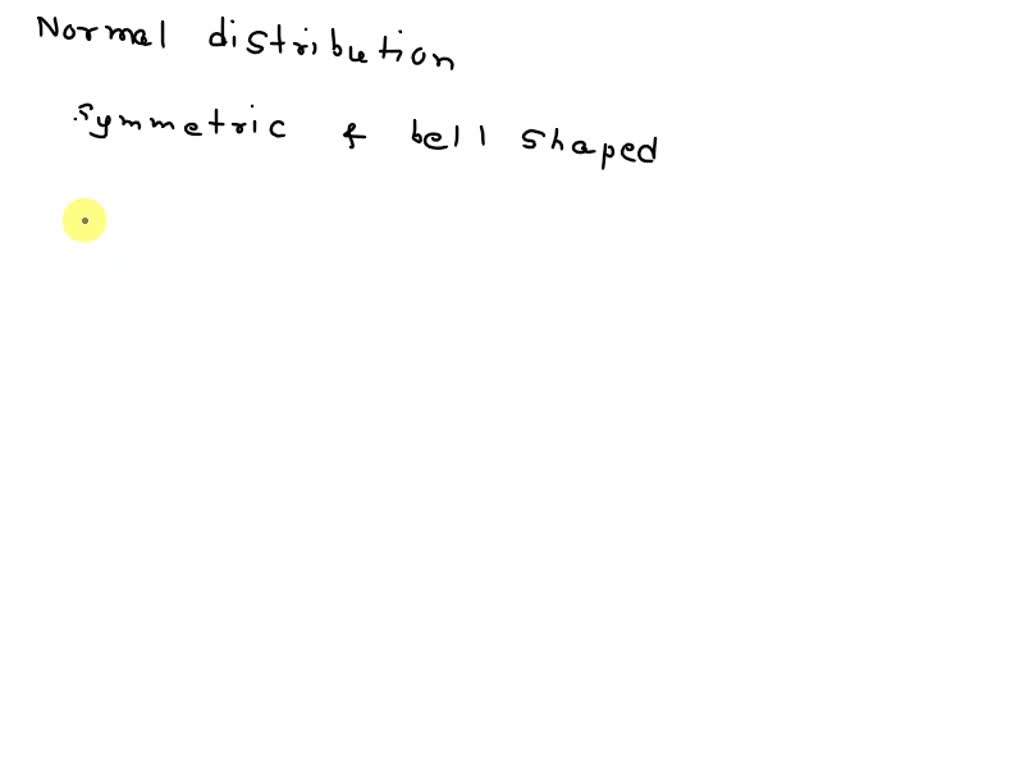 Normal distribution
Symmetric & bell shaped